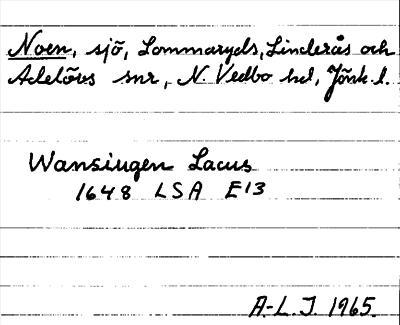 Noen, sjö, Lommaryds, Linderås och
Adelövs snr, N. Vedbo hd, Jönk. l.
Wansiugen Lacus
1648 LSA E13
A-L. J. 1965.